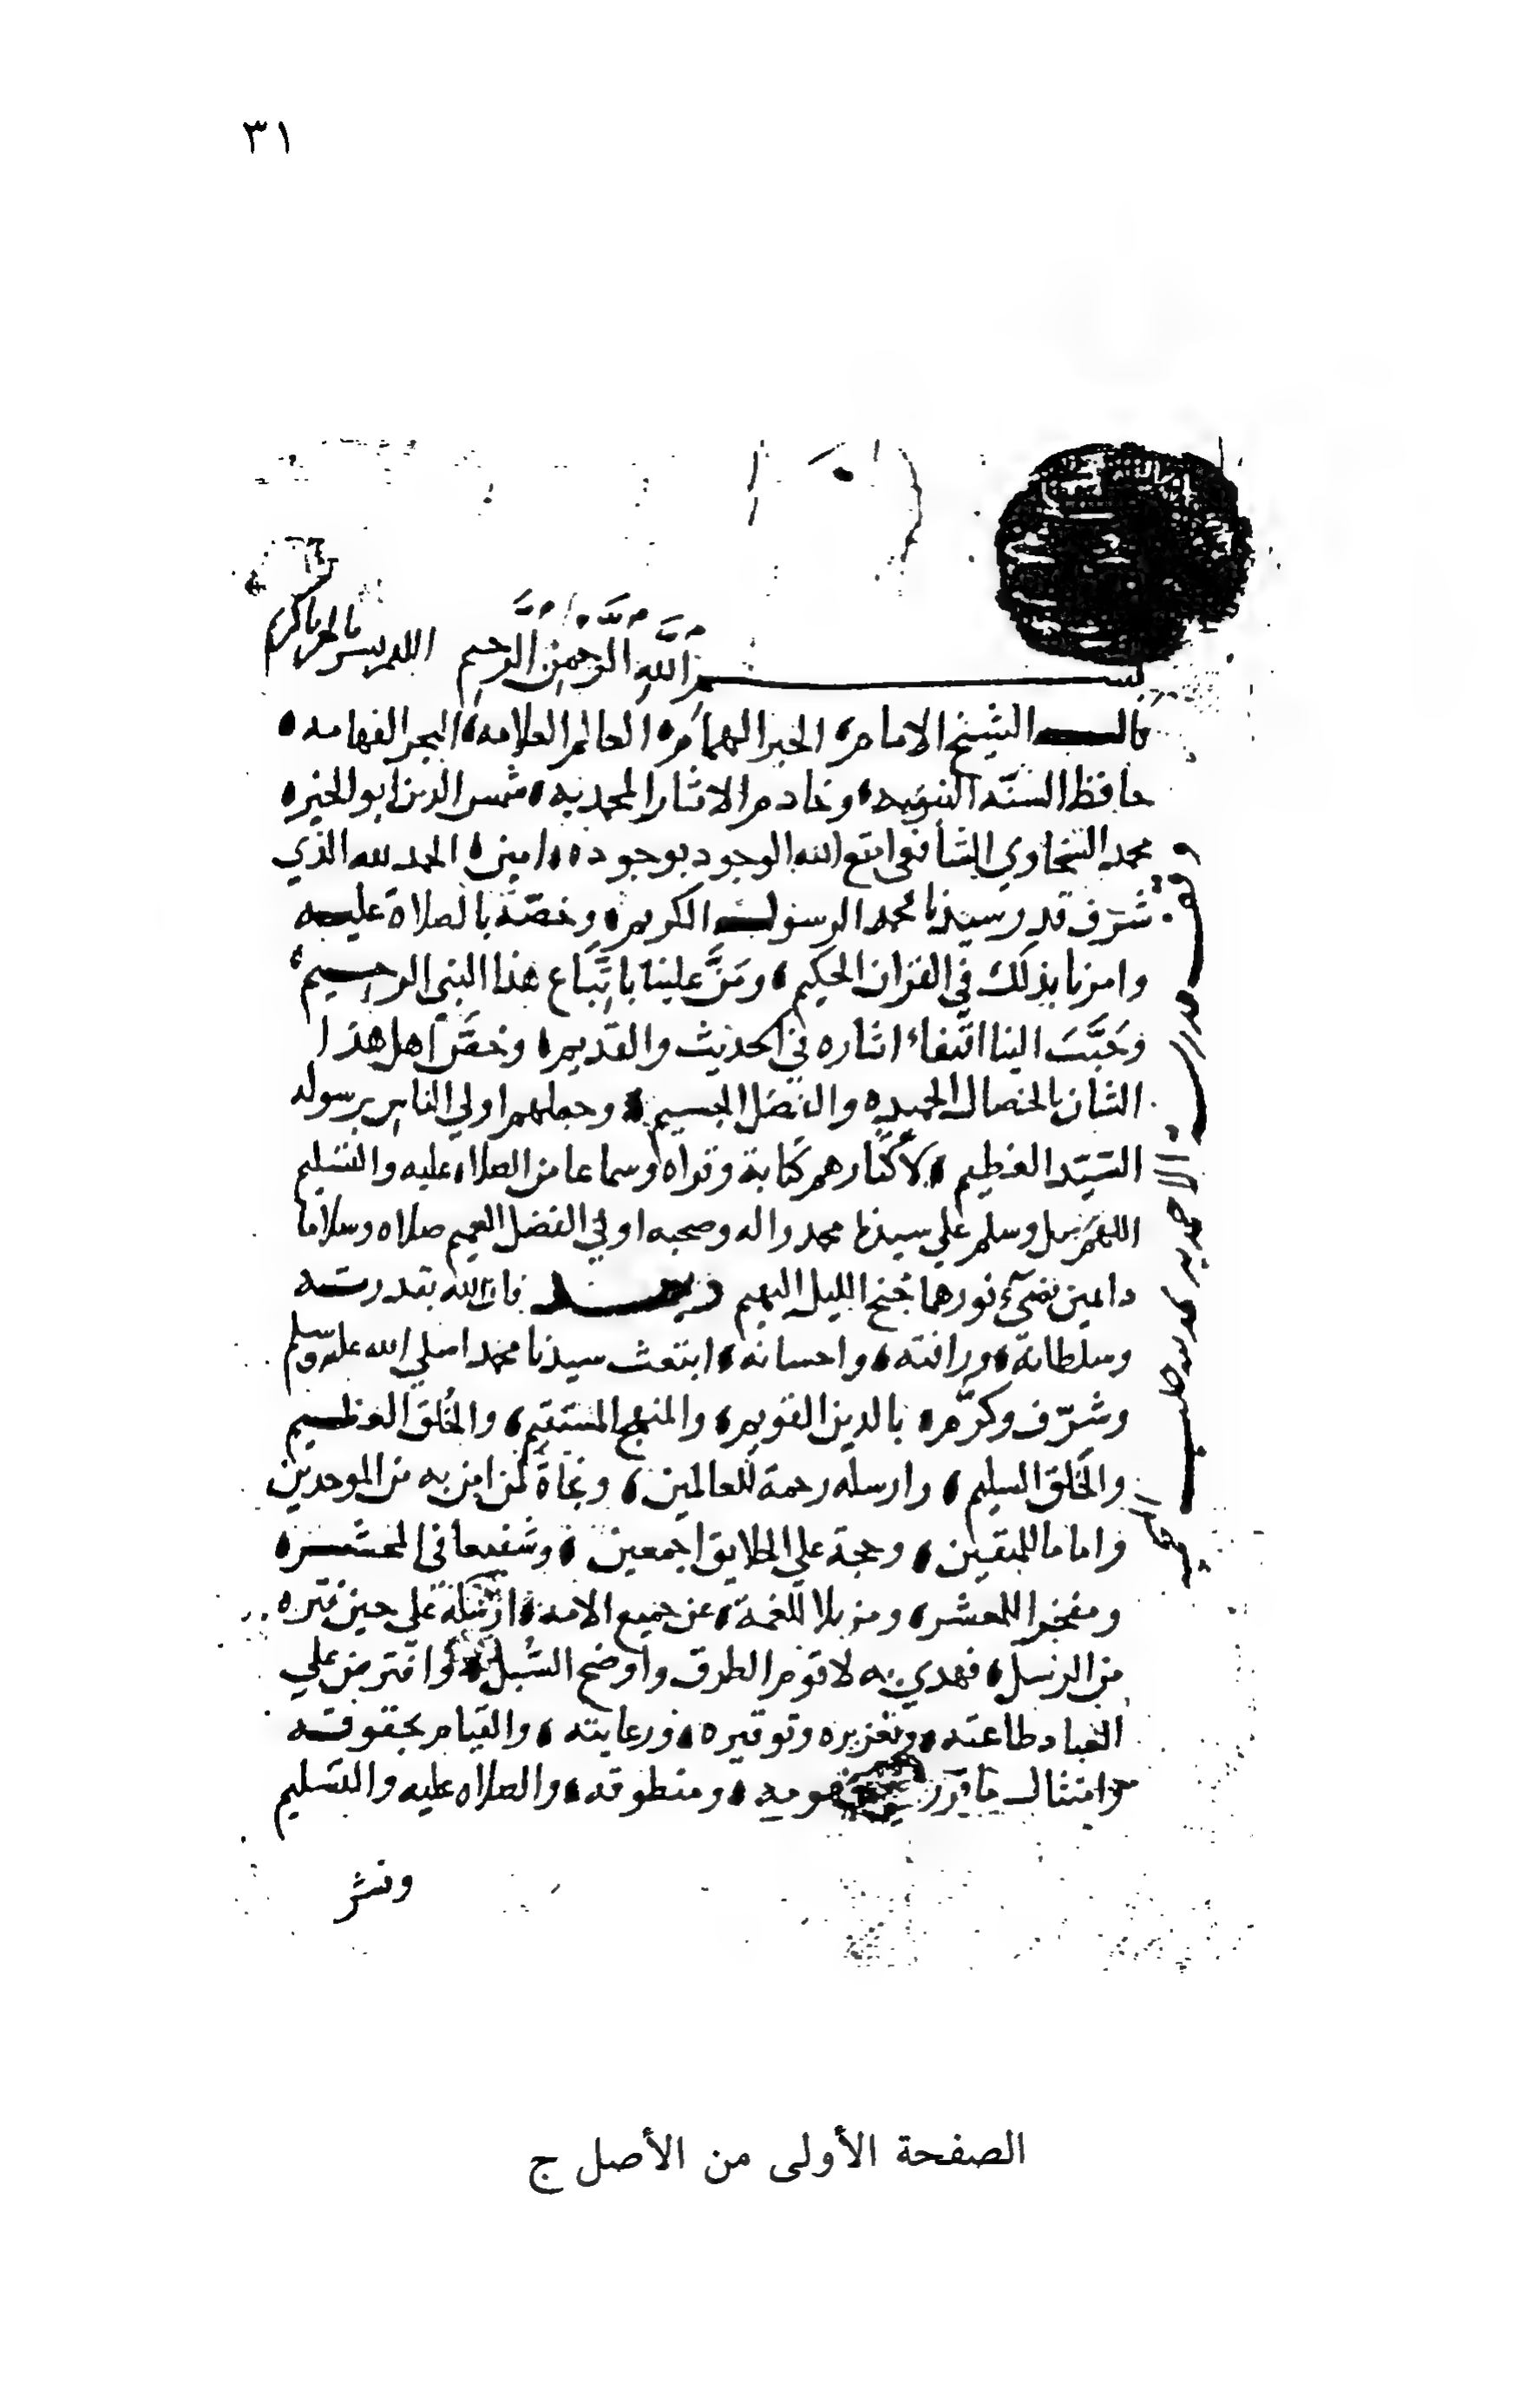 ٣١
بسم الله الرحمن الرحيم اللهم يسر بالخير يا كريم
قال الشيخ الامام الحبر الهمام العالم العلامه البحر الفهامه
حافظ السنّه النبويه وخادم الاثار المحمديه شمس الدين ابو الخير
محمد السخاوي الشافعي امتع الله الوجود بوجوده امين الحمد لله الذي
شرّف قدر سيدنا محمد الرسول الكريم وخصّه بالصلاة عليه
وامرنا بذلك في القران الحكيم ومَنَّ علينا باتِّباع هذا النبي الرحيم
وَحَبَّبَ الينا اقتفاء اثاره في الحديث والقديم وخصّ اهل هذا
الشان بالخصال الحميده والفضل الجسيم وجعلهم اولي الناس برسوله
السيّد العظيم لاكثارهم كتابة وقراه وسماعا من الصلاه عليه والتسليم
اللهم صل وسلم علي سيدنا محمد واله وصحبه اولي الفضل العميم صلاه وسلاما
دايمين نضيء نورهما جُنح الليل البهيم وبعد فان الله بقدرته
وسلطانه ورافته واحسانه ابتعث سيدنا محمدا صلي الله عليه وسلم
وشرّف وكرّم بالدين القويم والمنهج المستقيم والخُلق العظيم
والخَلق السليم وارسله رحمة للعالمين ونجاة لمن امن به من الموحدين
واماما للمتقين وحجة علي الخلايق اجمعين وشفيعا في المحشر
ومفخرا للمعشر ومزيلا للغمة عن جميع الامه ارسله علي حين فتره
من الرسل فهدي به لاقوم الطرق واوضح السُبل وافترض علي
العباد طاعته وتعزيره وتوقيره ورعايته والقيام بحقوقه
وامتثال ما قرر مفهومه ومنطوقه والصلاه عليه والتسليم
ونشر
الصفحة الأولى من الأصل ج